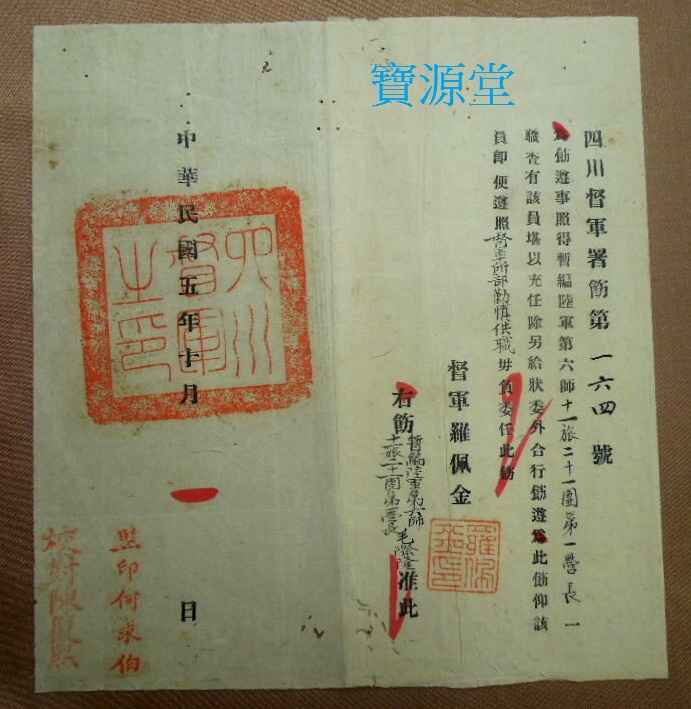 寶源堂
四川督軍署飭第一六四號
為飭遵事照得暫編陸軍第六師十一旅二十一團第一營長一
職查有該員堪以充任除另給狀委外合行飭遵為此飭仰該
員即便遵照督率所部勤慎供職毋負委任此飭
督軍羅佩金
羅佩金印
右飭
暫編陸軍第六師
十一旅二十一團第一營長
毛
准此
中華民國五年十月
一
日
四川督軍之印
監印何求伯
校對陳復